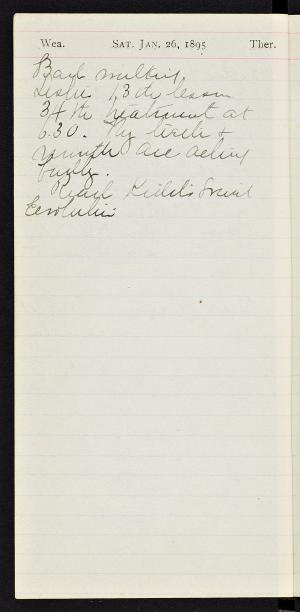 Wea. SAT. JAN. 26, 1895 Ther.
Bad walking.
Leslie 13th lesson
34th treatment at
6.30. My teeth &
mouth are acting
badly.
Read Kidd's Social
Evolution